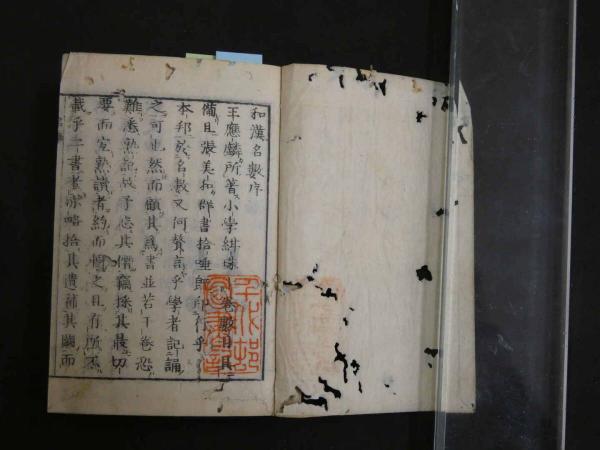 和漢名數序
王應麟所著小學紺珠 卷數目具
備且張美和群書拾唾 乎
本邦於名數又何贅言乎學者記誦
之可也然而顧其爲書並若干卷恐
難悉熟記故予忘其僭竊採其最切
要而宜熟讀者約而 之且有所不
載乎二書者 略拾其遺補其闕而